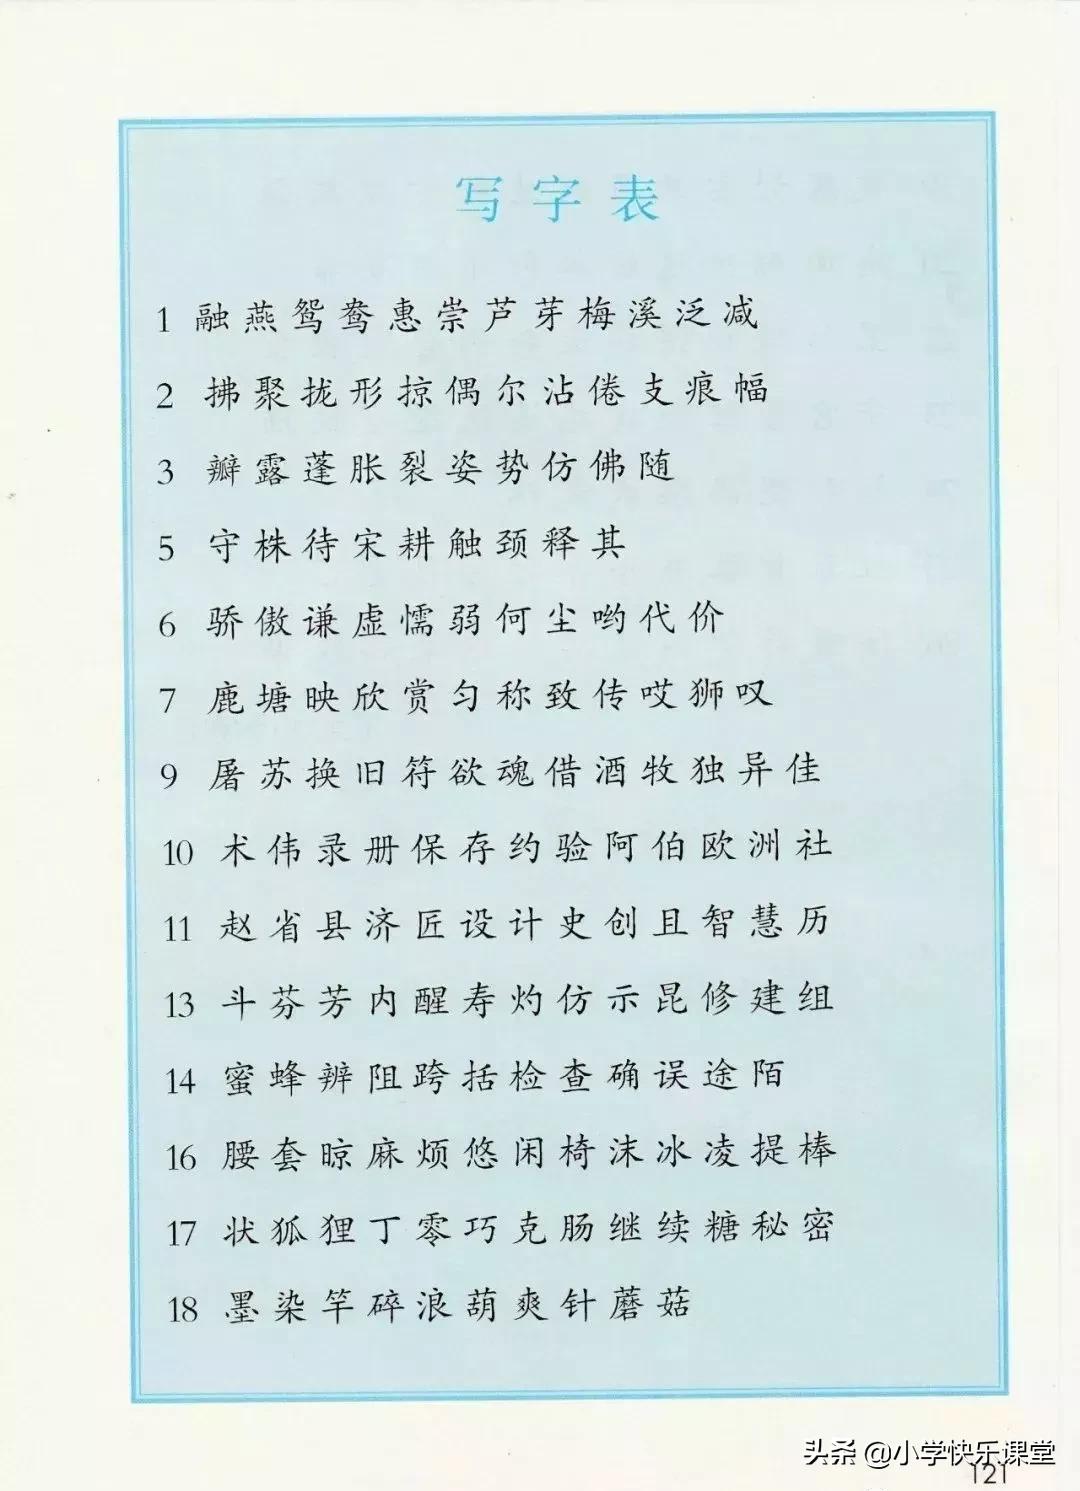 写字表
1 融燕鸳鸯惠崇芦芽梅溪泛减
2 拂聚拢形掠偶尔沾倦支痕幅
3 瓣露蓬胀裂姿势仿佛随
5 守株待宋耕触颈释其
6 骄傲谦虚懦弱何尘哟代价
7 鹿塘映欣赏匀称致传哎狮叹
9 屠苏换旧符欲魂借酒牧独异佳
10 术伟录册保存约验阿伯欧洲社
11 赵省县济匠设计史创且智慧历
13 斗芬芳内醒寿灼仿示昆修建组
14 蜜蜂辨阻跨括检查确误途陌
16 腰套晾麻烦悠闲椅沫冰凌提棒
17 状狐狸丁零巧克肠继续糖秘密
18 墨染竿碎浪葫爽针蘑菇
头条 @小学快乐课堂
121